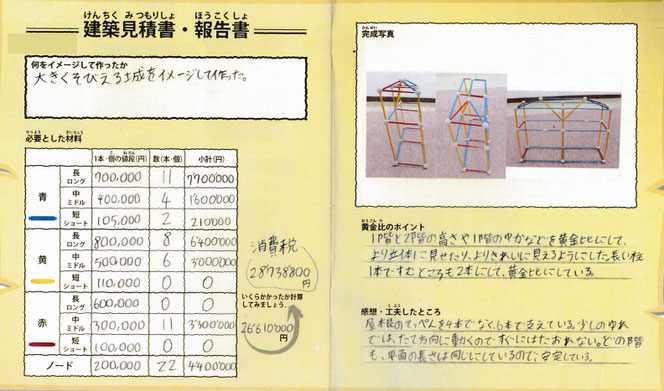 建築見積書・報告書
けんちく みつもりしょ ほうこくしょ
何をイメージして作ったか
大きくそびえる城をイメージして作った。
必要とした材料
1本・個の値段(円) 数(本・個) 小計(円)
青 長 ロング 700,000 11 7'700'000
中 ミドル 400,000 4 1'600'000
短 ショート 105,000 2 210'000
黄 長 ロング 800,000 8 6'400'000
中 ミドル 500,000 6 3'000'000
短 ショート 110,000 0 0
赤 長 ロング 600,000 0 0
中 ミドル 300,000 11 3'300'000
短 ショート 100,000 0 0
ノード 200,000 22 4'400'000
消費税
28'738'800
円
いくらかかったか計算
してみましょう。
26'610'000
円
かんせい
完成写真
おうごんひ
黄金比のポイント
1階と2階の高さや1階の中かなどを黄金比にして、
より立体に見せたり、よりきれいに見えるようにした。長い柱
1本ですむところも2本にして、黄金比にしている。
くふう
感想・工夫したところ
屋根のてっぺんを4本でなく、6本で支えている。少しのゆれ
では、たて方向に動くのですぐにはたおれない。どの階
も、平面の長さは同じにしているので、安定している。